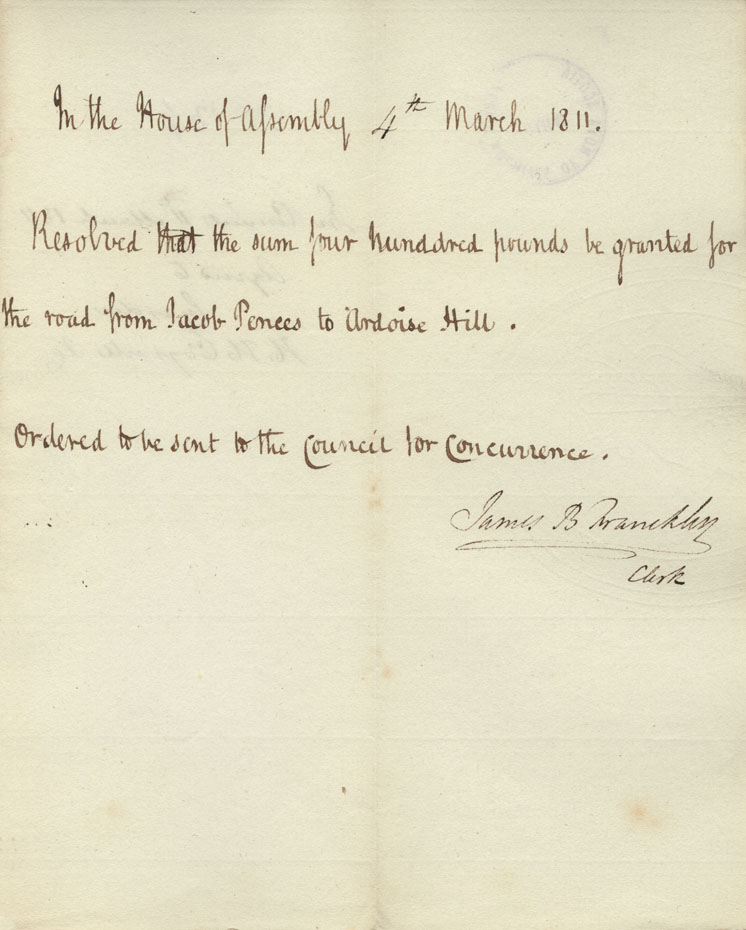 In the House of Assembly 4th March 1811.
Resolved that the sum four hunddred pounds be granted for
the road from Jacob Pences to Ardoise Hill.
Ordered to be sent to the Council for Concurrence.
James B Franckling
Clerk